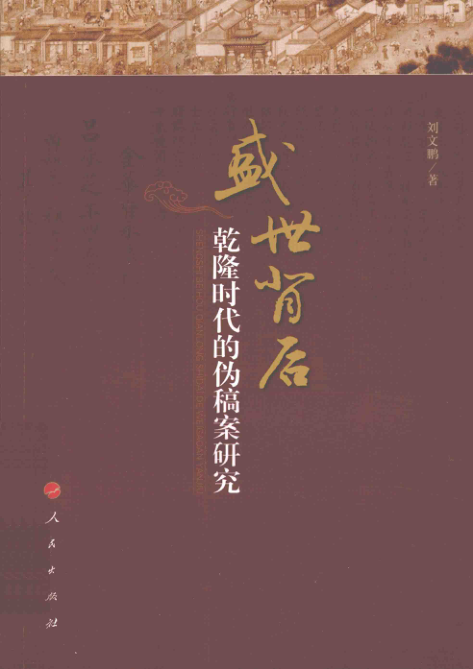 刘文鹏／著
盛世背后
乾隆时代的伪稿案研究
人民出版社